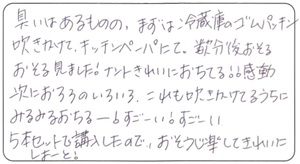 臭いはあるものの、まずは冷蔵庫のゴムパッキン
吹きかけて、キッチンペーパーにて。数分後おそる
おそる見ました!ナントきれいにおちてる!!感動
次におふろのいろいろ、これも吹きかけてるうちに
みるみるおちるー!すごーい!すごーい
5本セットで購入したので、おそうじ楽してきれいに
しまーと!